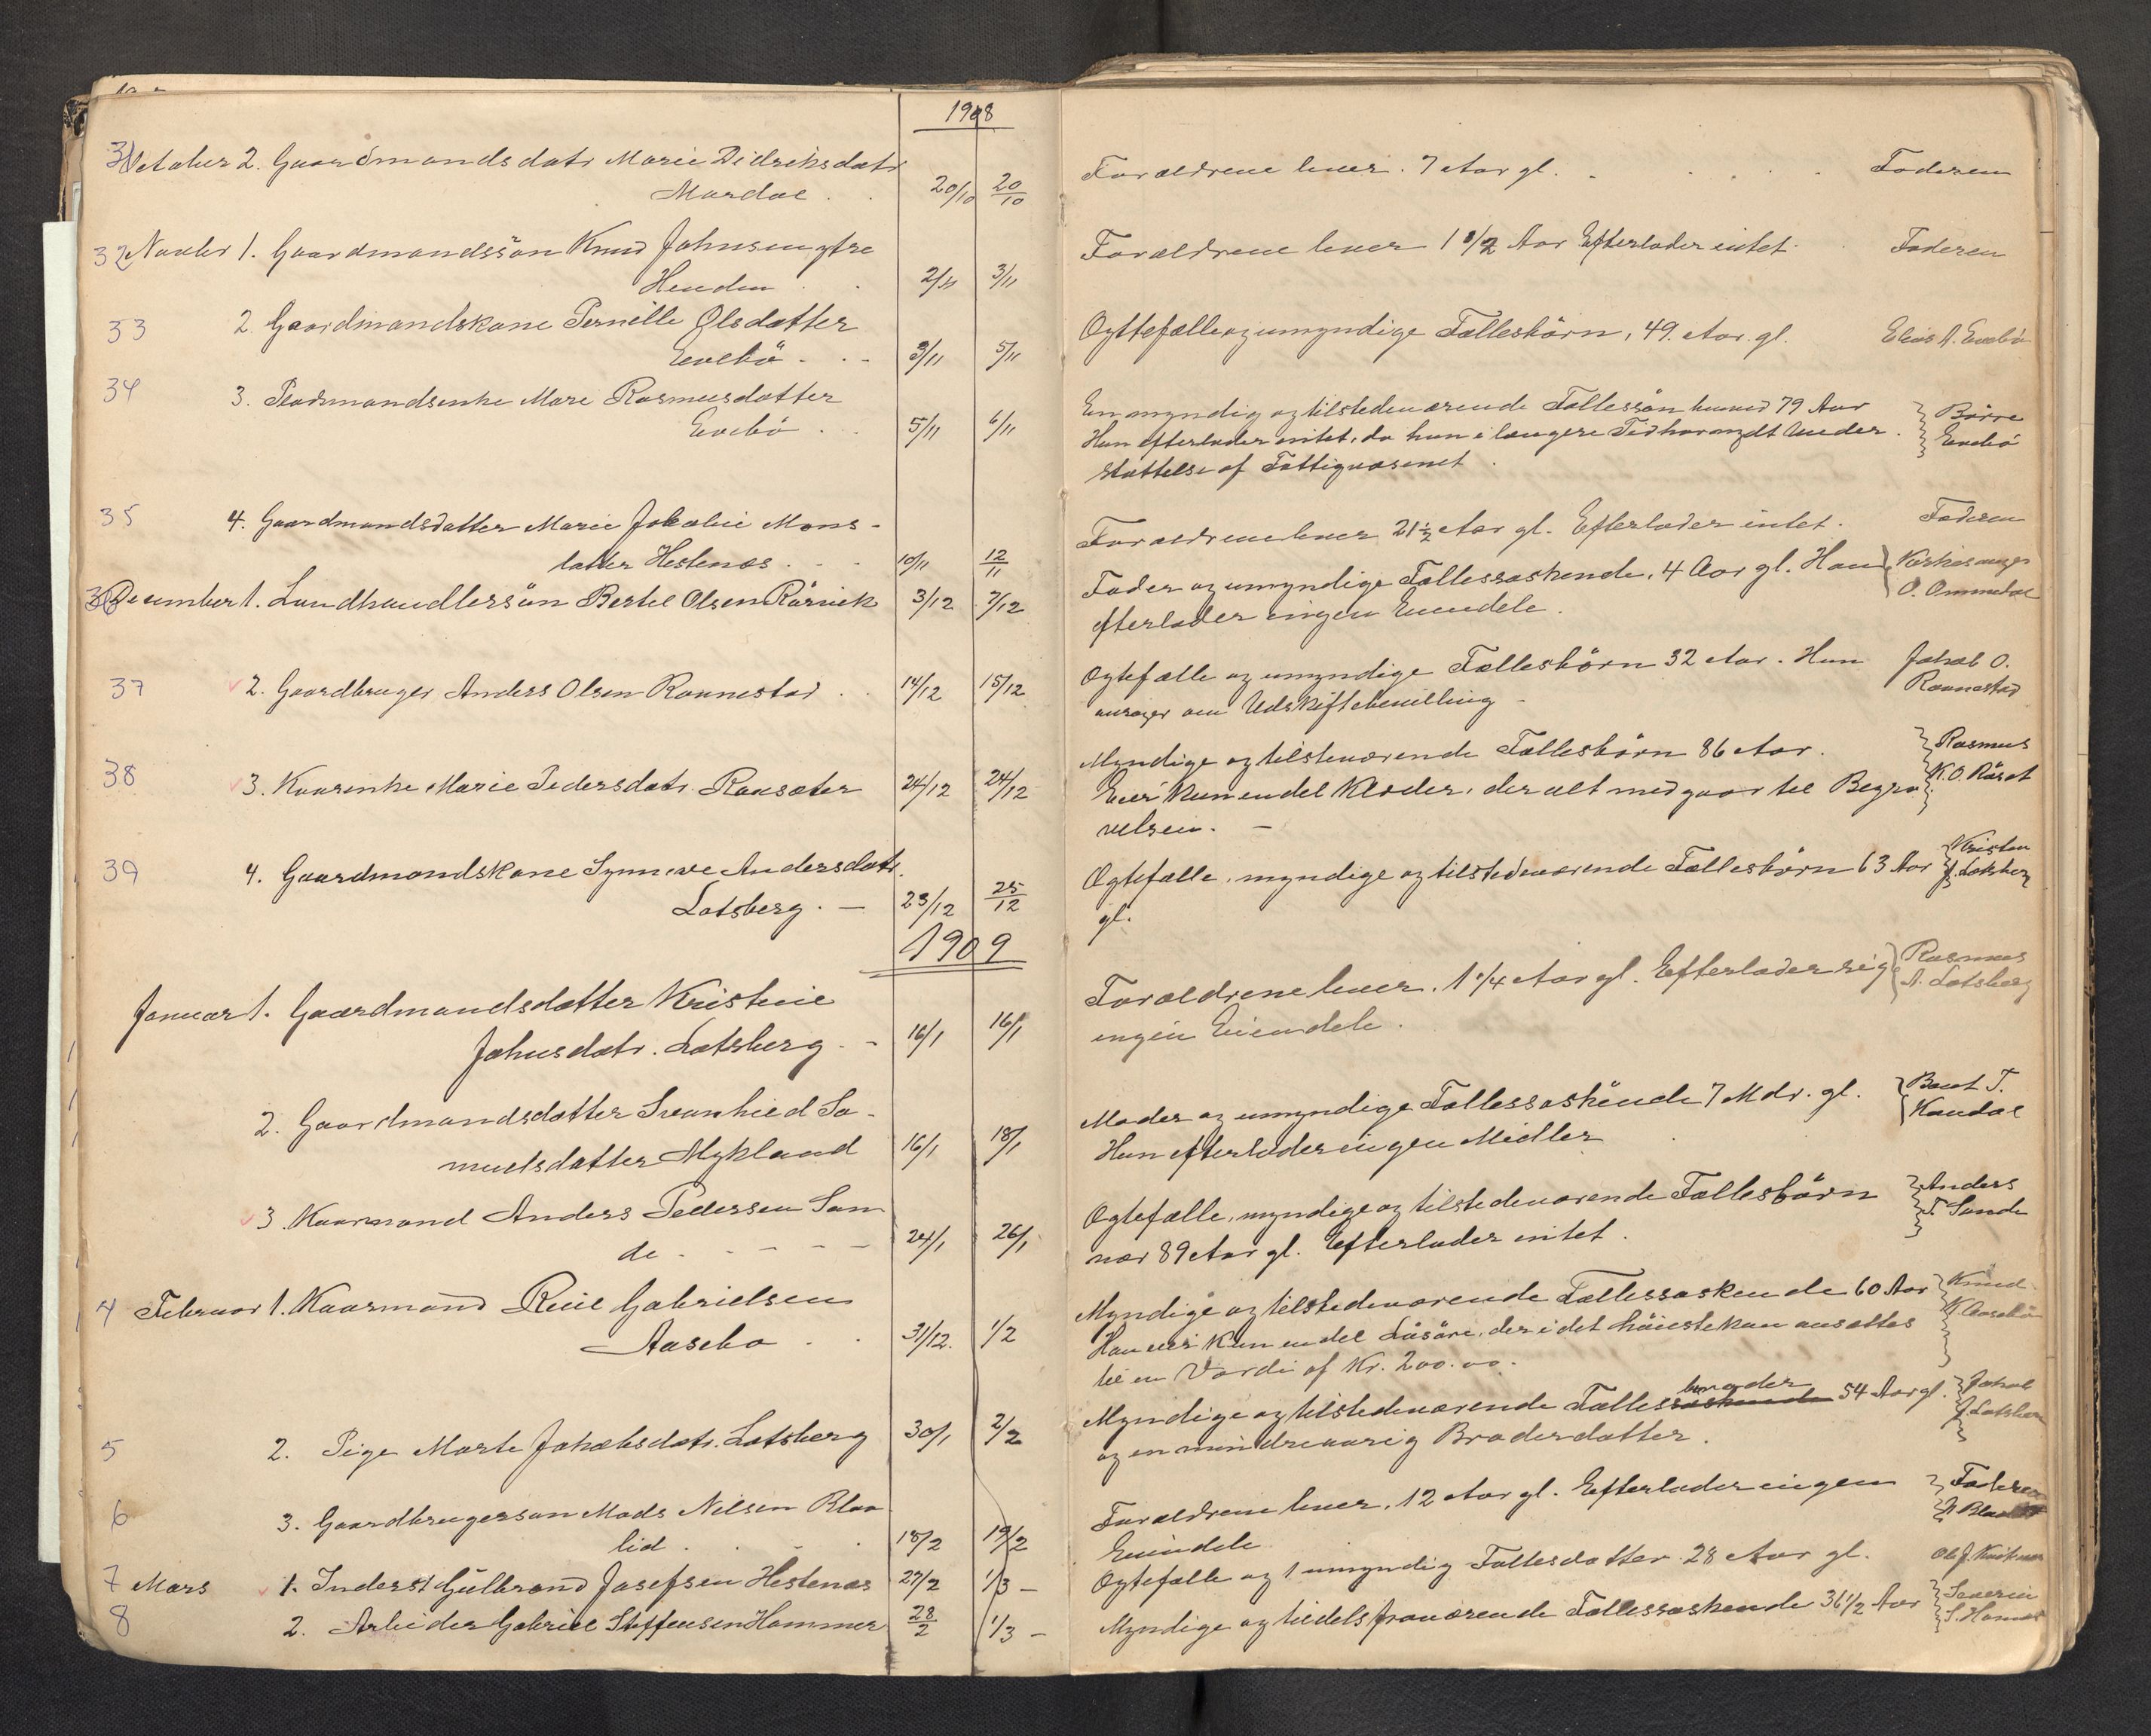 1908
31 October 2. Gaardmandsdatr Marie Didriksdatr
Mardal . . 20/10 20/10 Forældrene lever. 7 Aar gl. . . . . Faderen
32 Novbr 1. Gaardmandssön Knud Johnsen ytre
Henden . . 2/11 3/11 Forældrene lever 1 1/2 Aar Efterlader intet. Faderen
33 2. Gaardmandskone Pernille Olsdatter
Evebö . . - 3/11 5/11 Ogtefælle og umyndige Fællesbörn, 49. Aar. gl. Elias A. Evebö
34 3. Pladsmandsenke Mari Rasmusdatter
Evebö . . 5/11 6/11 En myndig og tilstedeværende Fællessön 79 Aar
Hun efterlader intet, da hun i længere Tid har nydt Under-
støttelse af Fattigvæsenet . Börre
Evebö
35 4. Gaardmandsdatter Marie Jakobie Mons-
datter Hestenæs . . - 10/11 12/11 Forældrene lever 21 1/2 Aar gl. Efterlader intet. Faderen
36 December 1. Landhandlersön Bertel Olsen Rörvik 3/12 7/12 Fader og umyndige Fællessøskende, 4 Aar gl. Han
efterlader ingen Eiendele. Kirkesanger
O. Ommedal
37 2. Gaardbruger Anders Olsen Ronnestad . . 14/12 15/12 Ogtefælle og umyndige Fællesbörn 32 Aar. Hun
ansøger om Udskiftebevilling - Jakob O.
Rønnestad
38 3. Kaarenke Marie Pedersdatr. Raasæter 24/12 24/12 Myndige og tilstenærende Fællesbörn 86 Aar.
Eier kun endel Klæder, der alt medgaar til Begra-
velsen. - Rasmus
K. O. Råset
39 4. Gaardmandskone Synneve Andersdatr.
Lotsberg. - 23/12 25/12 Ogtefælle, myndige og tilstedeværende Fællesbörn 63 Aar
gl. Kristen
J. Lotsberg
1909
Januar 1. Gaardmandsdatter Kristine
Johnsdatr. Lotsberg. - 16/1 16/1 Forældrene lever. 1 3/4 Aar gl. Efterlader sig
ingen Eiendele. Rasmus
A. Lotsberg
2. Gaardmandsdatter Svanhild Sa-
muelsdatter Mykland 16/1 18/1 Moder og umyndige Fællessøskende 7 Mdr. gl.
Hun efterlader ingen Midler Bent T.
Kandal
3. Kaarmand Anders Pedersen San-
de . - - - - 24/1 26/1 Ogtefælle, myndige og tilstedeværende Fællesbörn
nær 89 Aar gl. Efterlader intet. Anders
T. Sande
4 Februar 1. Kaarmand Gabrielsen
Aasebø . . 31/12. 1/2 Myndige og tilstedeværende Fællessøskende 60 Aar
Han eier kun endel Lösöre, der i det höieste kan ansættes
til en Værdi af Kr. 200.00. Knud
K Aasebö
5 2. Pige Marte Jakobsdatr. Lotsberg 30/1 2/2 Myndige og tilstedeværende Fællessøskende brøder 54 Aar gl.
og en mindreaarig Broderdatter. Jakob
J. Lotsberg
6 3. Gaardbrugersøn Mads Nilsen Blaa-
lid . . . 18/2 19/2 Forældrene lever, 12 Aar gl. Efterlader ingen
Eiendele Faderen
7 Mars 1. Inderst Gulbrand Josefsen Hestenæs 27/2 1/3 - Ogtefælle og 1 umyndig Fællesdatter 28 Aar gl. Ole J.
8 2. Arbeider Gabriel Steffensen Hammer 28/2 1/3 - Myndige og tildels fraværende Fællessøskende 36 1/2 Aar Severin
S. Hammer